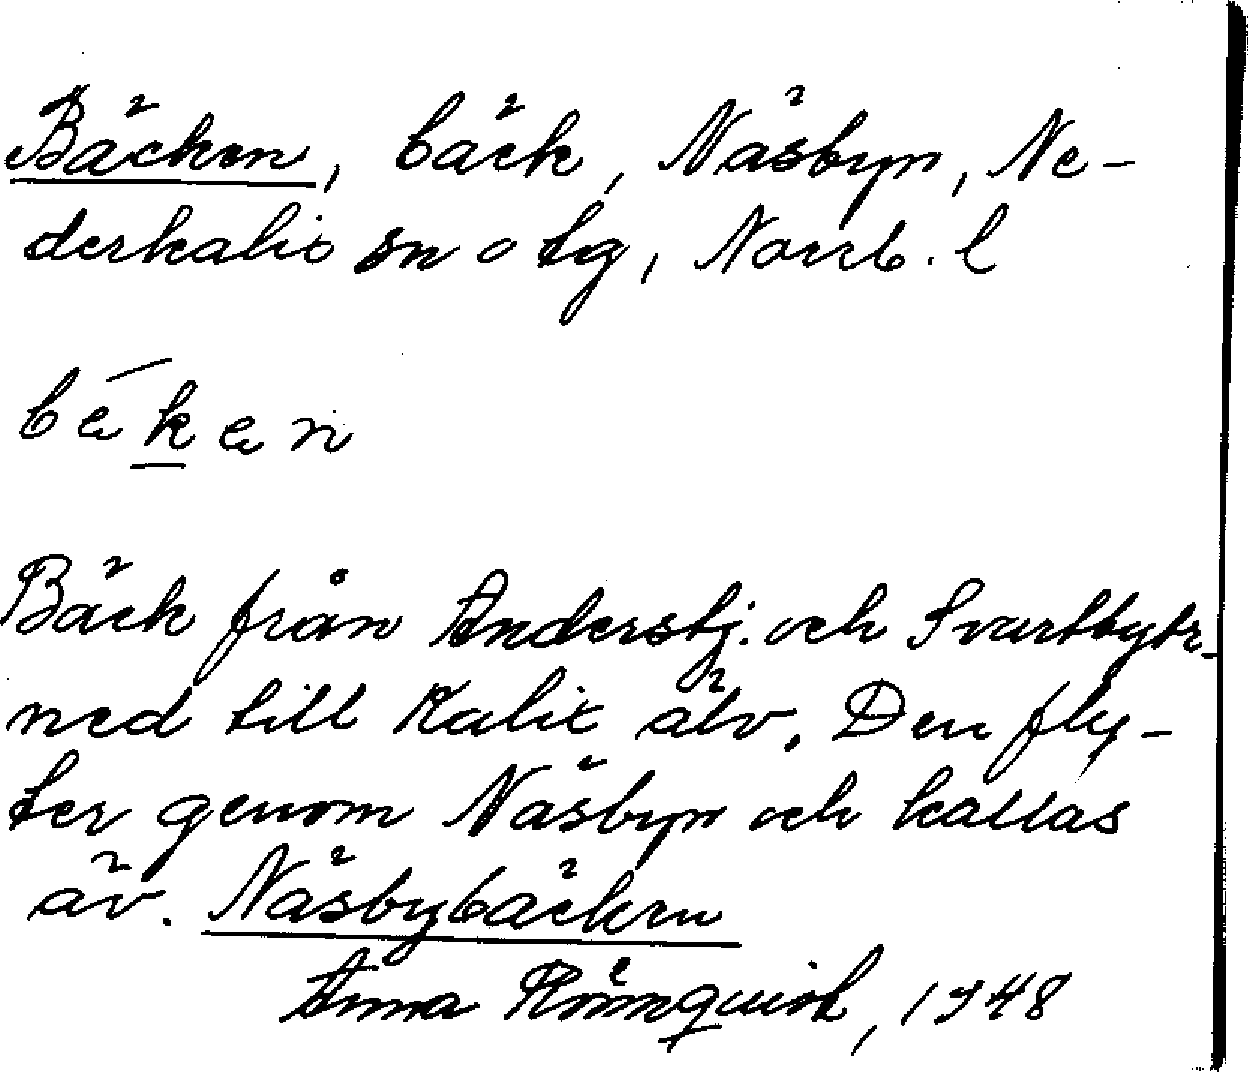 Bäcken, bäck, Näsbyn, Ne-
derkalix sn o tg, Norrb. l
bèken
Bäck från Anderstj. och Svartbytr.
ned till Kalix älv. Den fly-
ter genom Näsbyn och kallas
äv. Näsbybäcken
Anna Rönnquist, 1948